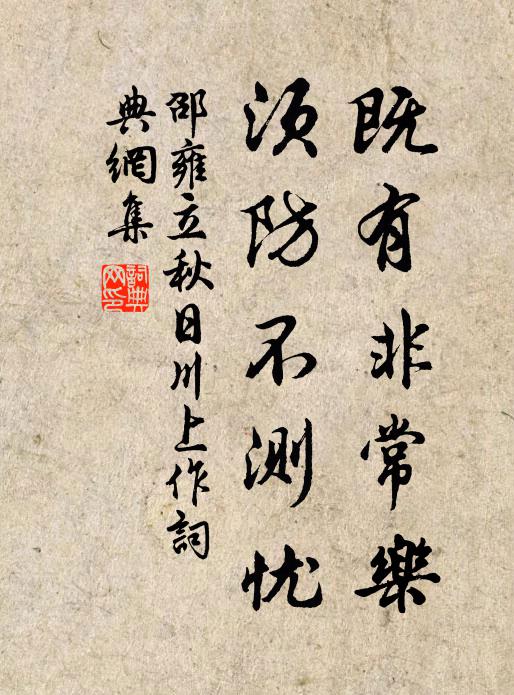 既有非常樂
须防不测忧
邵雍立秋日川上作詞
典網集
詞典
网印